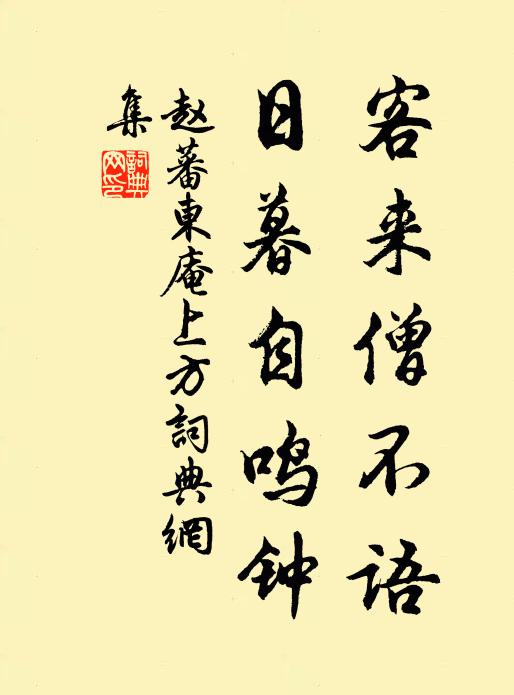 客来僧不语
日暮自鸣钟
赵蕃東庵上方詞典網
集
詞典
网印